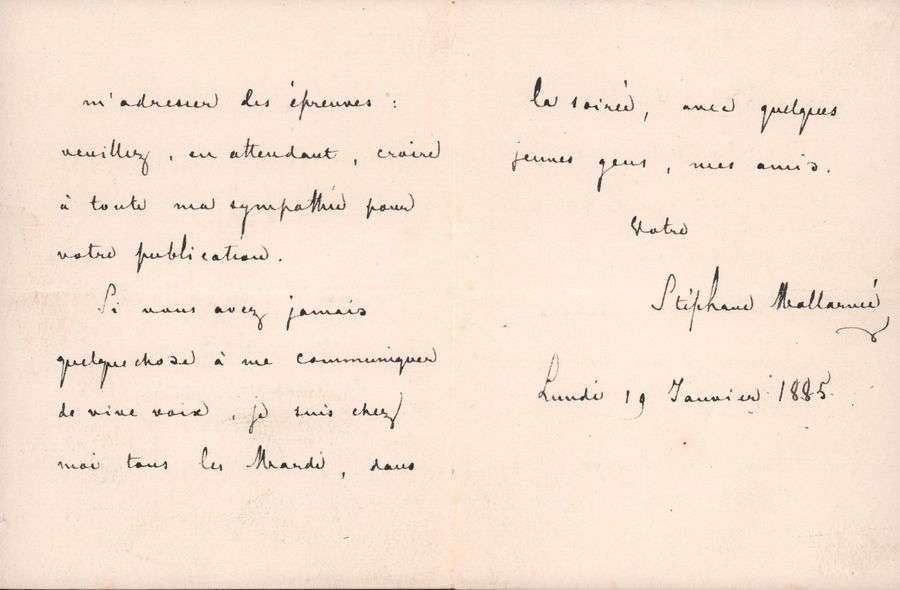 m'adresser des épreuves :
veuillez, en attendant, croire
à toute ma sympathie pour
votre publication.
Si vous avez jamais
quelque chose à me communiquer
de vive voix, je suis chez
moi tous les Mardi, dans
la soirée, avec quelques
jeunes gens, mes amis.
Votre
Stéphane Mallarmé
Lundi 19 Janvier 1885.